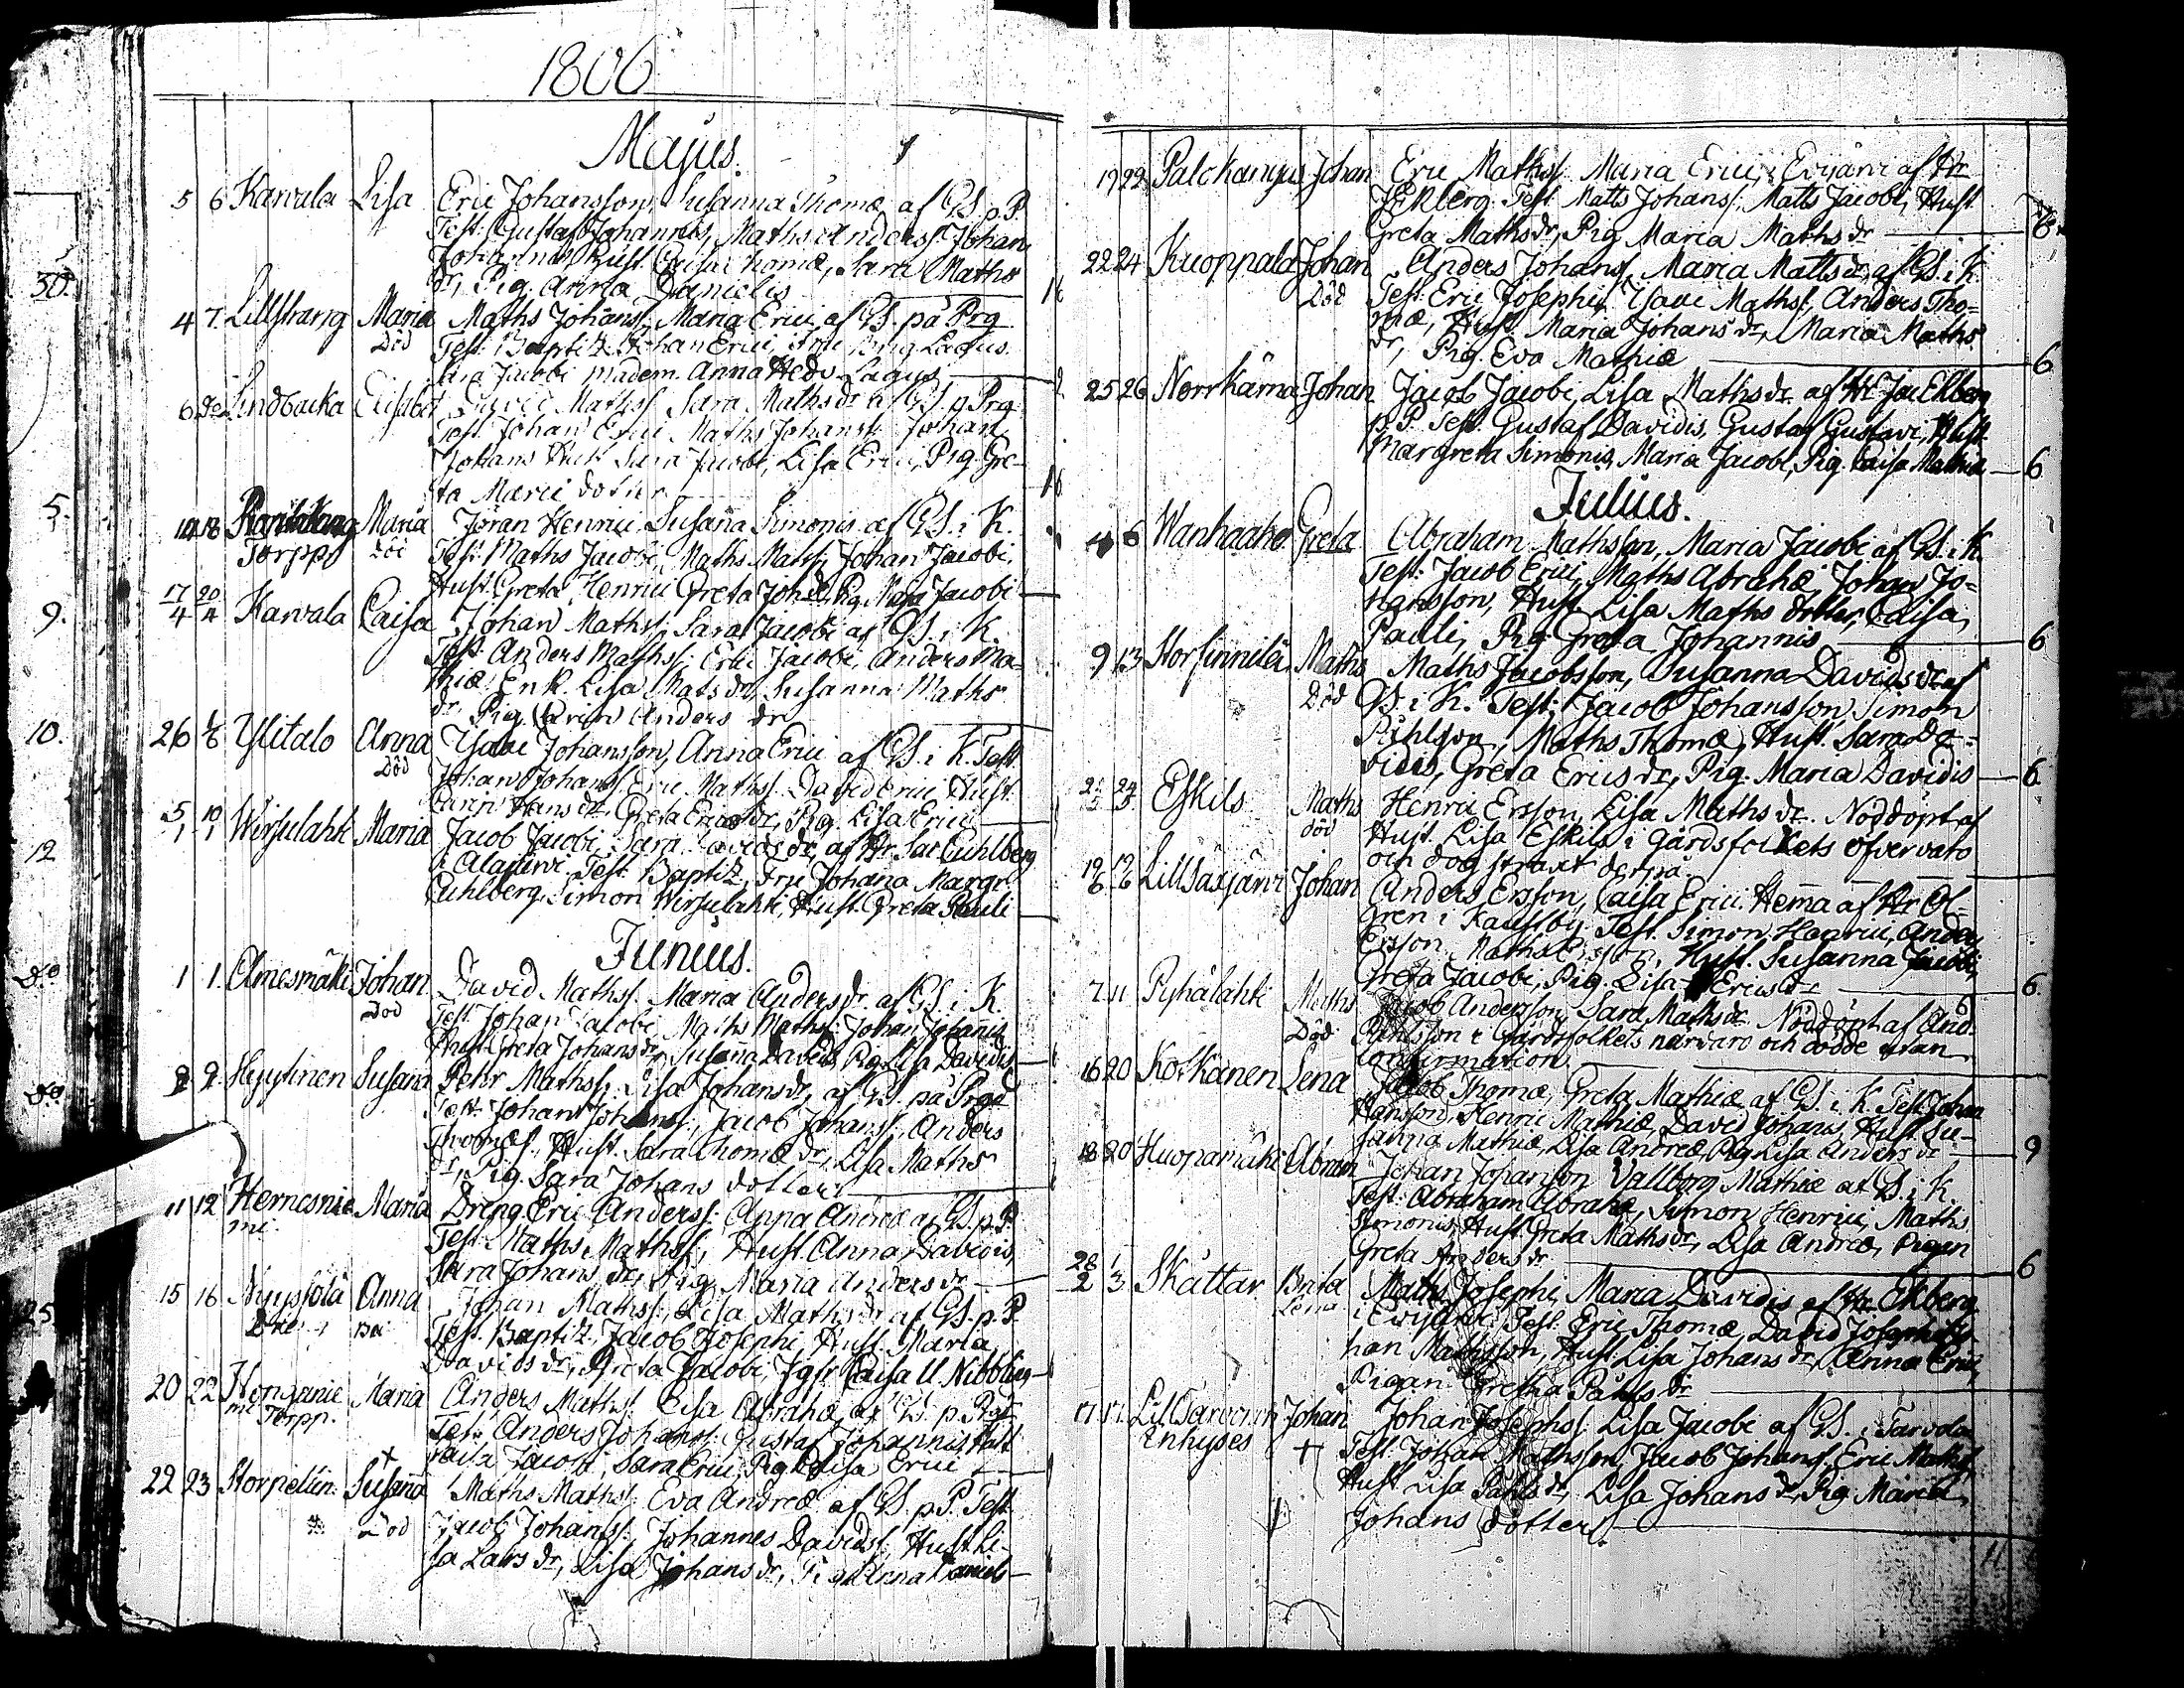 1806
Majus.
5 6 Karvala Lisa Eric Johansson, Susanna Thomæ af GS. p. P.
Test: Gustaf Johannis, Maths Anderss. Johan
Johannis Hust. Caisa Thomæ, Sara Maths
dr, Pig. Anna Danielis
4 7. Lillstrang Maria Maths Johanss. Maria Erici af GS. på Prg
Död Test: Baptiz. Johan Erici, Fru Brig. Lagus.
Sara Jacobi Madem. Anna Hedv. Lagus
6 do Lindbacka Elisabet David Mathss. Sara Mathsdr af GS. p Prg
Test. Johan Erici Maths Johanss. Johan
Johans Hust. Sara Jacobi, Lisa Erici, Pig. Gre-
ta Marii dotter
18 Maria Jöran Henrici Susanna Simonis af GS. i K.
Torpp död Test: Maths Jacobi, Maths Matss. Johan Jacobi,
Hust. Greta Henrici Greta Joh. dr, Pig. Maria Jacobi
17/4 20/4 Karvala Caisa Johan Mathss. Sara Jacobi af GS. i K.
Test. Anders Mathss. Eric Jacobi, Anders Ma-
thiæ Enk. Lisa Mats dr, Susanna Maths
dr, Pig. Carin Anders dr
26 1/6 Ylitalo Anna Isac Johansson, Anna Erici af GS. i K. Test
Död Johan Johanss. Eric Mathss. David Erici Hust.
Carin Hans dr, Greta Erics dr, Pig. Lisa Erici
5/1 10/1 Wirsulahti Maria Jacob Jacobi, Sara Davids dr af Hr. Sac Cuhlberg
i Alajerwi. Test. Baptiz. Fru Johana Margr.
Cuhlberg, Simon Wirsulahti, Hust. Greta Pauli
Junius.
1 1. Elmesmäki Johan David Mathss. Maria Andersdr. af GS. i K.
Död Test. Johan Jacobi Maths Mathss. Johan Johannis
Hust. Greta Johans dr, Susanna Davids, Pig. Lisa Davidis
9 9. Hyytinen Susana Pehr Mathss. Lisa Johansdr, af GS. på Prgd
Test: Johan Johanss. Jacob Johanss. Anders
Thomæs. Hust. Sara Thomæ dr, Lisa Maths
dr, Pig. Sara Johans dotter
11 12 Hernesnie- Maria Dreng Eric Anderss. Anna Andreæ af GS. p. P.
mi. Test. Maths Mathss, Hust. Anna Davidis,
Sara Johans dr, Pig. Maria Anders dr
15 16 Nyyssölä Anna Johan Mathss. Lisa Maths dr af GS. p. P.
Test. Baptiz. Jacob Josephi Hust. Maria
Davids dr, Greta Jacobi, Jgfr Caisa U. Nibbling
20 22 Honganie Maria Anders Mathss. Lisa Abrahæ af GS. p. Prg
mi Torpp. Test. Anders Johanss. Gustaf Johannis, Hust
Caisa Jacobi, Sara Erici, Pig. Lisa Erici
22 23 Storpellin. Susana Maths Mathss. Eva Andreæ af GS. p. P. Test
Död Jacob Johanss. Johannes Davidss. Hust. Li-
sa Lars dr, Lisa Johans dr, Pig. Anna Daniels
19 22 Palokangas Johan Eric Mathss. Maria Erici, Evijärvi af Hr
J. Ekberg. Test. Matts Johanss. Matts Jacobi, Hust.
Greta Maths dr, Pig. Maria Maths dr
22 24 Kuoppala Johan Anders Johanss. Maria Matts dr, af GS. i K.
Död Test. Eric Josephi, Isaac Mathss. Anders Tho-
mæ, Hust. Maria Johans dr, Maria Maths
dr, Pig. Eva Mathiæ 6
25 26 Norrkärna Johan Jacob Jacobi, Lisa Maths dr. af Hr Jac Ekberg
p. P. Test. Gustaf Davidis, Gustaf Gustavi, Hust.
Margreta Simonis, Maria Jacobi, Pig. Caisa Mathiæ 6
Julius.
4 6 Wanhaaho Greta Abraham Mathsson, Maria Jacobi af GS. i K.
Test: Jacob Erici, Maths Abrahæ, Johan Jo-
hansson, Hust. Lisa Maths dotter, Caisa
Pauli, Pig. Greta Johannis 6
9 13 Storfinnilä Maths Maths Jacobsson, Susanna Davids dr af
Död GS. i K. Test: Jacob Johansson, Simon
Pihlson, Maths Thomæ, Hust. Sara Da-
vidis, Greta Erics dr, Pig. Maria Davidis 6
Eskils Maths Henric Ersson, Lisa Maths dr. Nöddöpt af
död Hust. Lisa Eskils i Gårdsfolkets öfvervaro
och dog straxt derpå.
Lillsäxjärvi Johan Anders Ersson, Caisa Erici. Hemma af Hr Ol-
gren i Kaustby. Test. Simon Henrici, Anders
Ersson, Maths Ersson, Hust. Susanna Jacobi,
Greta Jacobi, Pig. Lisa Erics dr 6.
7. 11 Pyhälahti Maths Jacob Andersson, Sara Maths dr. Nöddöpt af And.
Död Pahlsson i Gårdsfolkets närvaro och dödde utan
Confirmation
16 20 Kotkanen Lena Jacob Thomæ, Greta Mathiæ af GS. i K. Test. Johan
Hansson, Henric Mathiæ, David Johans, Hust. Su-
sanna Mathiæ, Lisa Andreæ, Pig. Lisa Anders dr 9
18 20 Huopamäki Abram Johan Johansson Vallborg Mathiæ af GS. i K.
Test: Abraham Abrahæ, Simon Henrici, Maths
Simonis, Hust. Greta Maths dr, Lisa Andreæ, Pigan
Greta Anders dr 6
28/2 1/3 Skattar Brita Maths Josephi, Maria Davidis af Hr Ekberg
Lena i Evijärvi. Test. Eric Thomæ, David Josephi, Jo-
han Mathsson, Hust. Lisa Johans dr, Anna Erici,
Pigan Gretha Påhls dr
17. 17. Johan Johan Josephss. Lisa Jacobi af GS. i Tarvola
Inhyses Test. Johan Mathsson, Jacob Johanss. Eric Mathss.
Hust. Lisa Påhls dr, Lisa Johans dr, Pig. Maria
Johans dotter
30.
5.
9.
10.
12
Do
Do
25